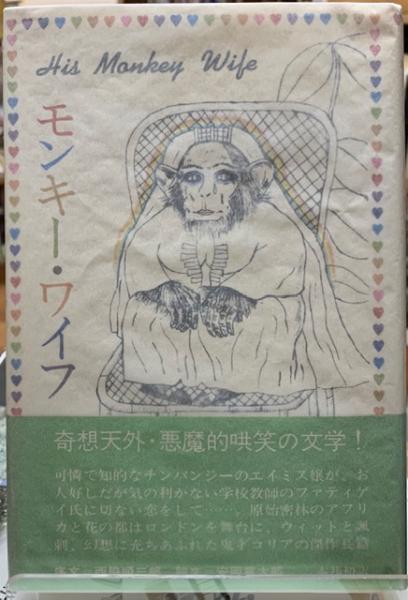 His Monkey Wife
モンキー・ワイフ
奇想天外・悪魔的哄笑の文学！
可憐で知的なチンパンジーのエイミズ嬢が、お
人好しだが気の利かない学校教師のファティゲ
イ氏に切ない恋をして……、原始密林のアフリ
カと花の都はロンドンを舞台に、ウィットと諷
刺、幻想に充ちあふれた鬼才コリアの傑作長篇